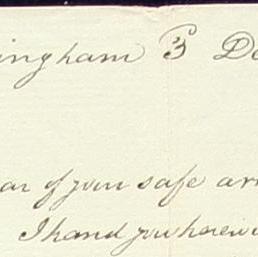 ingham 3 De
ar of your safe arr
I hand you herewi